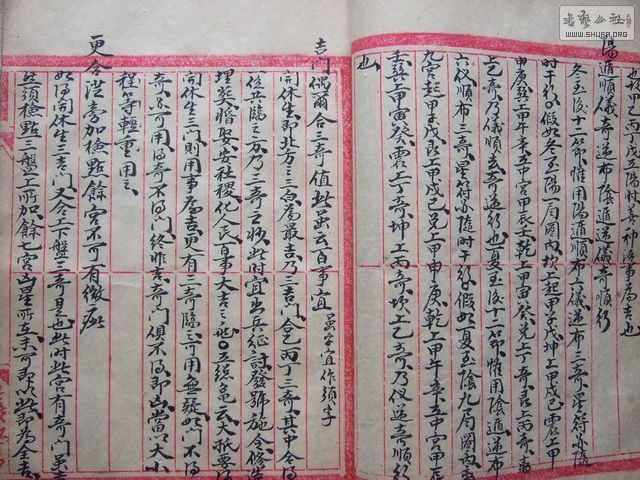 陽遁順儀奇逆布陰遁逆儀奇順行
冬至後十二節惟用陽遁順布六儀逆布三奇星符亦隨
時干行假如冬至陽一局圖內坎上起甲子戊坤上甲戌己震上甲
申庚巽上甲午辛五中宮甲辰壬乾上甲寅癸兌上丁奇艮上丙奇離
上乙奇乃儀順奇逆行也夏至後十二節惟用陰遁逆布
六儀順布三奇星符亦隨時干行假如夏至陰九局圖內離
九宮起甲子戊艮上甲戌己兌上甲申庚乾上甲午辛五中宮甲辰
壬巽上甲寅癸震上丁奇坤上丙奇坎上乙奇乃儀逆奇順行
也
吉門偶爾合三奇值此雖云百事宜 雖字宜作須字
開休生即北方三白為最吉乃三吉門合乙丙丁三奇其中合得
一位兵臨三方乃三奇之妙此時宜出兵征討發號施令修造
埋葬婚娶安社稷化人民百事大吉
開休生三門則用事為吉更有三奇臨之可用無疑如門不得
奇亦可用得奇不得門終非吉奇門俱不得即凶當以大小
程等輕重用之
更合從旁加檢點餘宮不可有微疵
如得開休生三吉門又合上下盤三奇是也此時此宮有奇門雖吉
然須檢點三盤上所加餘七宮凶星所在未可即以此即為全吉
書藝公社
WWW.SHUFA.ORG